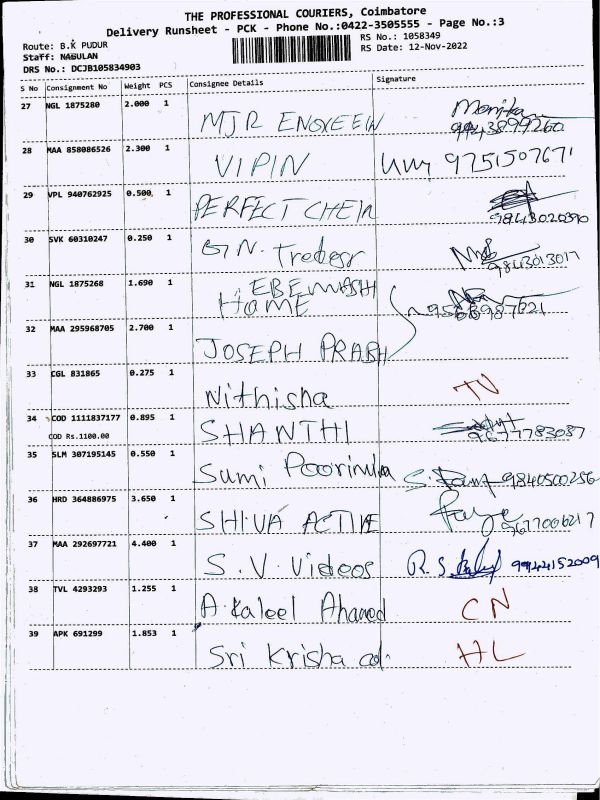 THE PROFESSIONAL COURIERS, Coimbatore
Delivery Runsheet - PCK - Phone No.:0422-3505555 - Page No.:3
Route: B.K PUDUR
RS No.: 1058349
Staff: NABULAN
RS Date: 12-Nov-2022
DRS No.: DCJB105834903
S No Consignment No Weight PCS Consignee Details Signature
27 NGL 1875280 2.000 1 MJR Monika
9943899260
28 MAA 858086526 2.300 1 VIPIN 9751507671
29 VPL 940762925 0.500 1 PERFECT CHEM
9843020390
30 SVK 60310247 0.250 1 G.N. Tredesr
9843013017
31 NGL 1875268 1.690 1 EBENMASH
HOME 9566987621
32 MAA 295968705 2.700 1
JOSEPH PRABH
33 CGL 831865 0.275 1 Nithisha
34 COD 1111837177 0.895 1 SHANTHI
COD Rs.1100.00 9677783087
35 SLM 307195145 0.550 1 Sumi Poorinula 9840500256
36 HRD 364886975 3.650 1 SHIVA ACTIVE
9677006217
37 MAA 292697721 4.400 1 S.V. Videos R.S. 9944152009
38 TVL 4293293 1.255 1 A.Kaleel Ahamed CN
39 APK 691299 1.853 1 Sri Krisha ad. HL